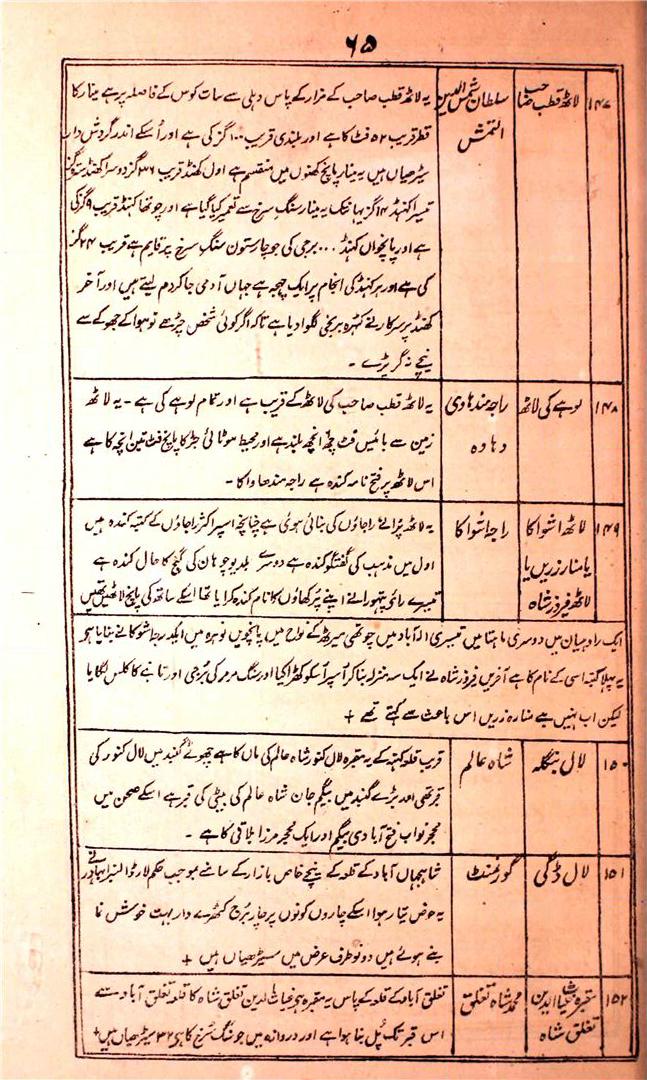 ۶۵
۱۴۷ لاٹھ قطب صاحب سلطان شمس الدین التمش
یہ لاٹھ قطب صاحب کے مزار کے پاس دہلی سے سات کوس کے فاصلہ پر ہے مینار کا
قطر قریب ۵۲ فٹ کا ہے اور بلندی قریب ۱۰۰ گز کی ہے اور اُسکے اندر گردش دار
سیڑھیاں ہیں یہ مینار پانچ کھنوں میں منقسم ہے اول کھنڈ قریب ۳۶ گز دوسرا کھنڈ
تیسرا کھنڈ ۱۴ گز یہانتک یہ مینار سنگِ سرخ سے تعمیر کیا گیا ہے اور چوتھا کھنڈ قریب ۹ گز کی
ہے اور پانچواں کھنڈ ... برجی کی جو چار ستون سنگِ سرخ پر قایم ہے قریب ۲۴ گز
کی ہے اور ہر کھنڈ کی انجام پر ایک چھجہ ہے جہاں آدمی جا کر دم لیتے ہیں اور آخر
کھنڈ پر سرکار نے کٹہرہ برنجی لگوا دیا ہے تاکہ اگر کوئی شخص چڑھے تو ہوا کے جھوکے سے
نیچے نہ گر پڑے ۔
۱۴۸ لوہے کی لاٹھ راجہ مندہاوی دہاوہ
یہ لاٹھ قطب صاحب کی لاٹھ کے قریب ہے اور تمام لوہے کی ہے ۔ یہ لاٹھ
زمین سے بائیس فٹ چھ انچھ بلند ہے اور محیط موٹائی جڑ کا پانچ فٹ تین انچہ کا ہے
اس لاٹھ پر فتح نامہ کندہ ہے راجہ مندھاوا کا ۔
۱۴۹ لاٹھ اشوکا یا منار زریں یا لاٹھ فیروز شاہ راجہ اشوکا
یہ لاٹھ پرانے راجاؤں کی بنائی ہوئی ہے چنانچہ اسپر اکثر راجاؤں کے کتبہ کندہ ہیں
اول میں مذہب کی گفتگو کندہ ہے دوسرے بلدیو چوہان کی فتح کا حال کندہ ہے
تیسرے رائے پتہورا نے اپنے پرکھاؤں کا نام کندہ کرایا تھا اسکے ساتھ کی پانچ لاٹھیں تھیں
ایک رادہیان میں دوسری ماہتا میں تیسری الہ آباد میں چوتھی میرٹھ کے نواح میں پانچویں نوہرہ میں ایک راجہ اشوکا نے بنایا ہے
یہ پہلا کتبہ اسی کے نام کا ہے آخر میں فیروز شاہ نے ایک سہ منزلہ بنا کر اُسپر اسکو کھڑا کیا اور سنگ مرمر کی بُرجی اور تانبے کا کلس لگایا
لیکن اب نہیں ہے منارہ زریں اس باعث سے کہتے تھے +
۱۵۰ لال بنگلہ شاہ عالم
قریب قلعہ کہنہ کے یہ مقبرہ لال کنور شاہ عالم کی ماں کا ہے چھوٹے گنبد میں لال کنور کی
قبر تھی اور بڑے گنبد میں بیگم جان شاہ عالم کی بیٹی کی قبر ہے اسکے صحن میں
محجر نواب فتح آبادی بیگم اور ایک محجر مرزا بلاقی کا ہے ۔
۱۵۱ لال ڈگی گورنمنٹ
شاہجہاں آباد کے قلعہ کے نیچے خاص بازار کے سامنے بموجب حکم لارڈ النبرا بہادر نے
یہ حوض تیار ہوا اسکے چاروں کونوں پر چار برج کٹھرے دار بہت خوش نما
بنے ہوئے ہیں دونو طرف عرض میں سیڑھیاں ہیں +
۱۵۲ مقبرہ غیاث الدین تغلق شاہ محمد شاہ تغلق
تغلق آباد کے قلعہ کے پاس یہ مقبرہ ہے غیاث الدین تغلق شاہ کا قلعہ تغلق آباد سے
اس قبر تک پُل بنا ہوا ہے اور دروازہ میں جو سنگ سُرخ کا ہے ۳۲ سیڑھیاں ہیں +